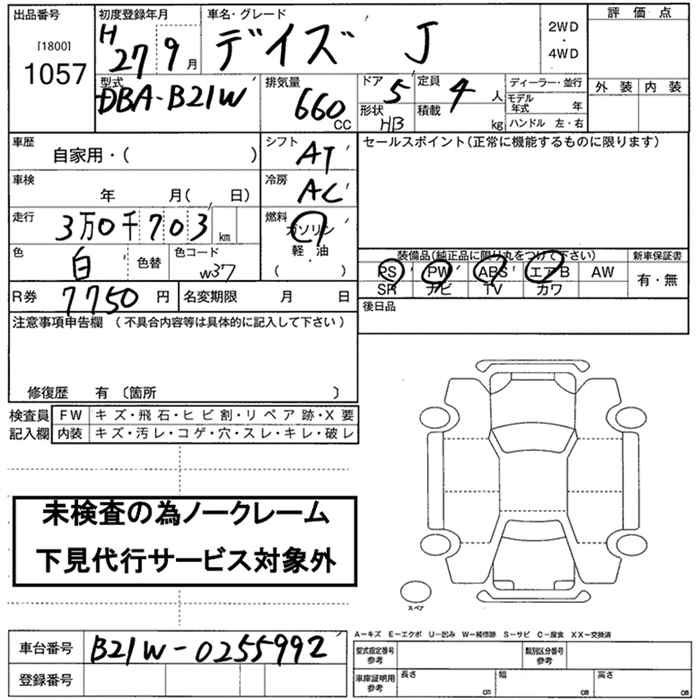 出品番号 初度登録年月 車名・グレード 評 価 点
[1800]
1057
H 27 9 月 デイズ J 2WD ・ 4WD
外 装 内 装
型式 排気量 ドア 定員 ディーラー・並行
DBA-B21W 660 CC 5 4 人 モデル年式 年
形状 HB 積載 kg ハンドル 左・右
車歴 自家用・( ) シフト AT セールスポイント(正常に機能するものに限ります)
車検 年 月( 日) 冷房 AC
走行 3万0千703 km 燃料 ガソリン
軽・油
( )
色 白 色替 色コード W37
装備品(純正品に限り丸をつけて下さい) 新車保証書
PS PW ABS エアB AW 有・無
SR ナビ TV カワ
R券 7750 円 名変期限 月 日 後日品
注意事項申告欄 (不具合内容等は具体的に記入して下さい)
修復歴 有 〔箇所 〕
検査員 FW キズ・飛石・ヒビ割・リペア跡・X要
記入欄 内装 キズ・汚レ・コゲ・穴・スレ・キレ・破レ
未検査の為ノークレーム
下見代行サービス対象外
スペア
A－キズ E－エクボ U－凹み W－補修跡 S－サビ C－腐食 XX－交換済
車台番号 B21W-0255992
登録番号
型式指定番号 参考 類別区分番号 参考
車庫証明用 参考 長さ cm 幅 cm 高さ cm